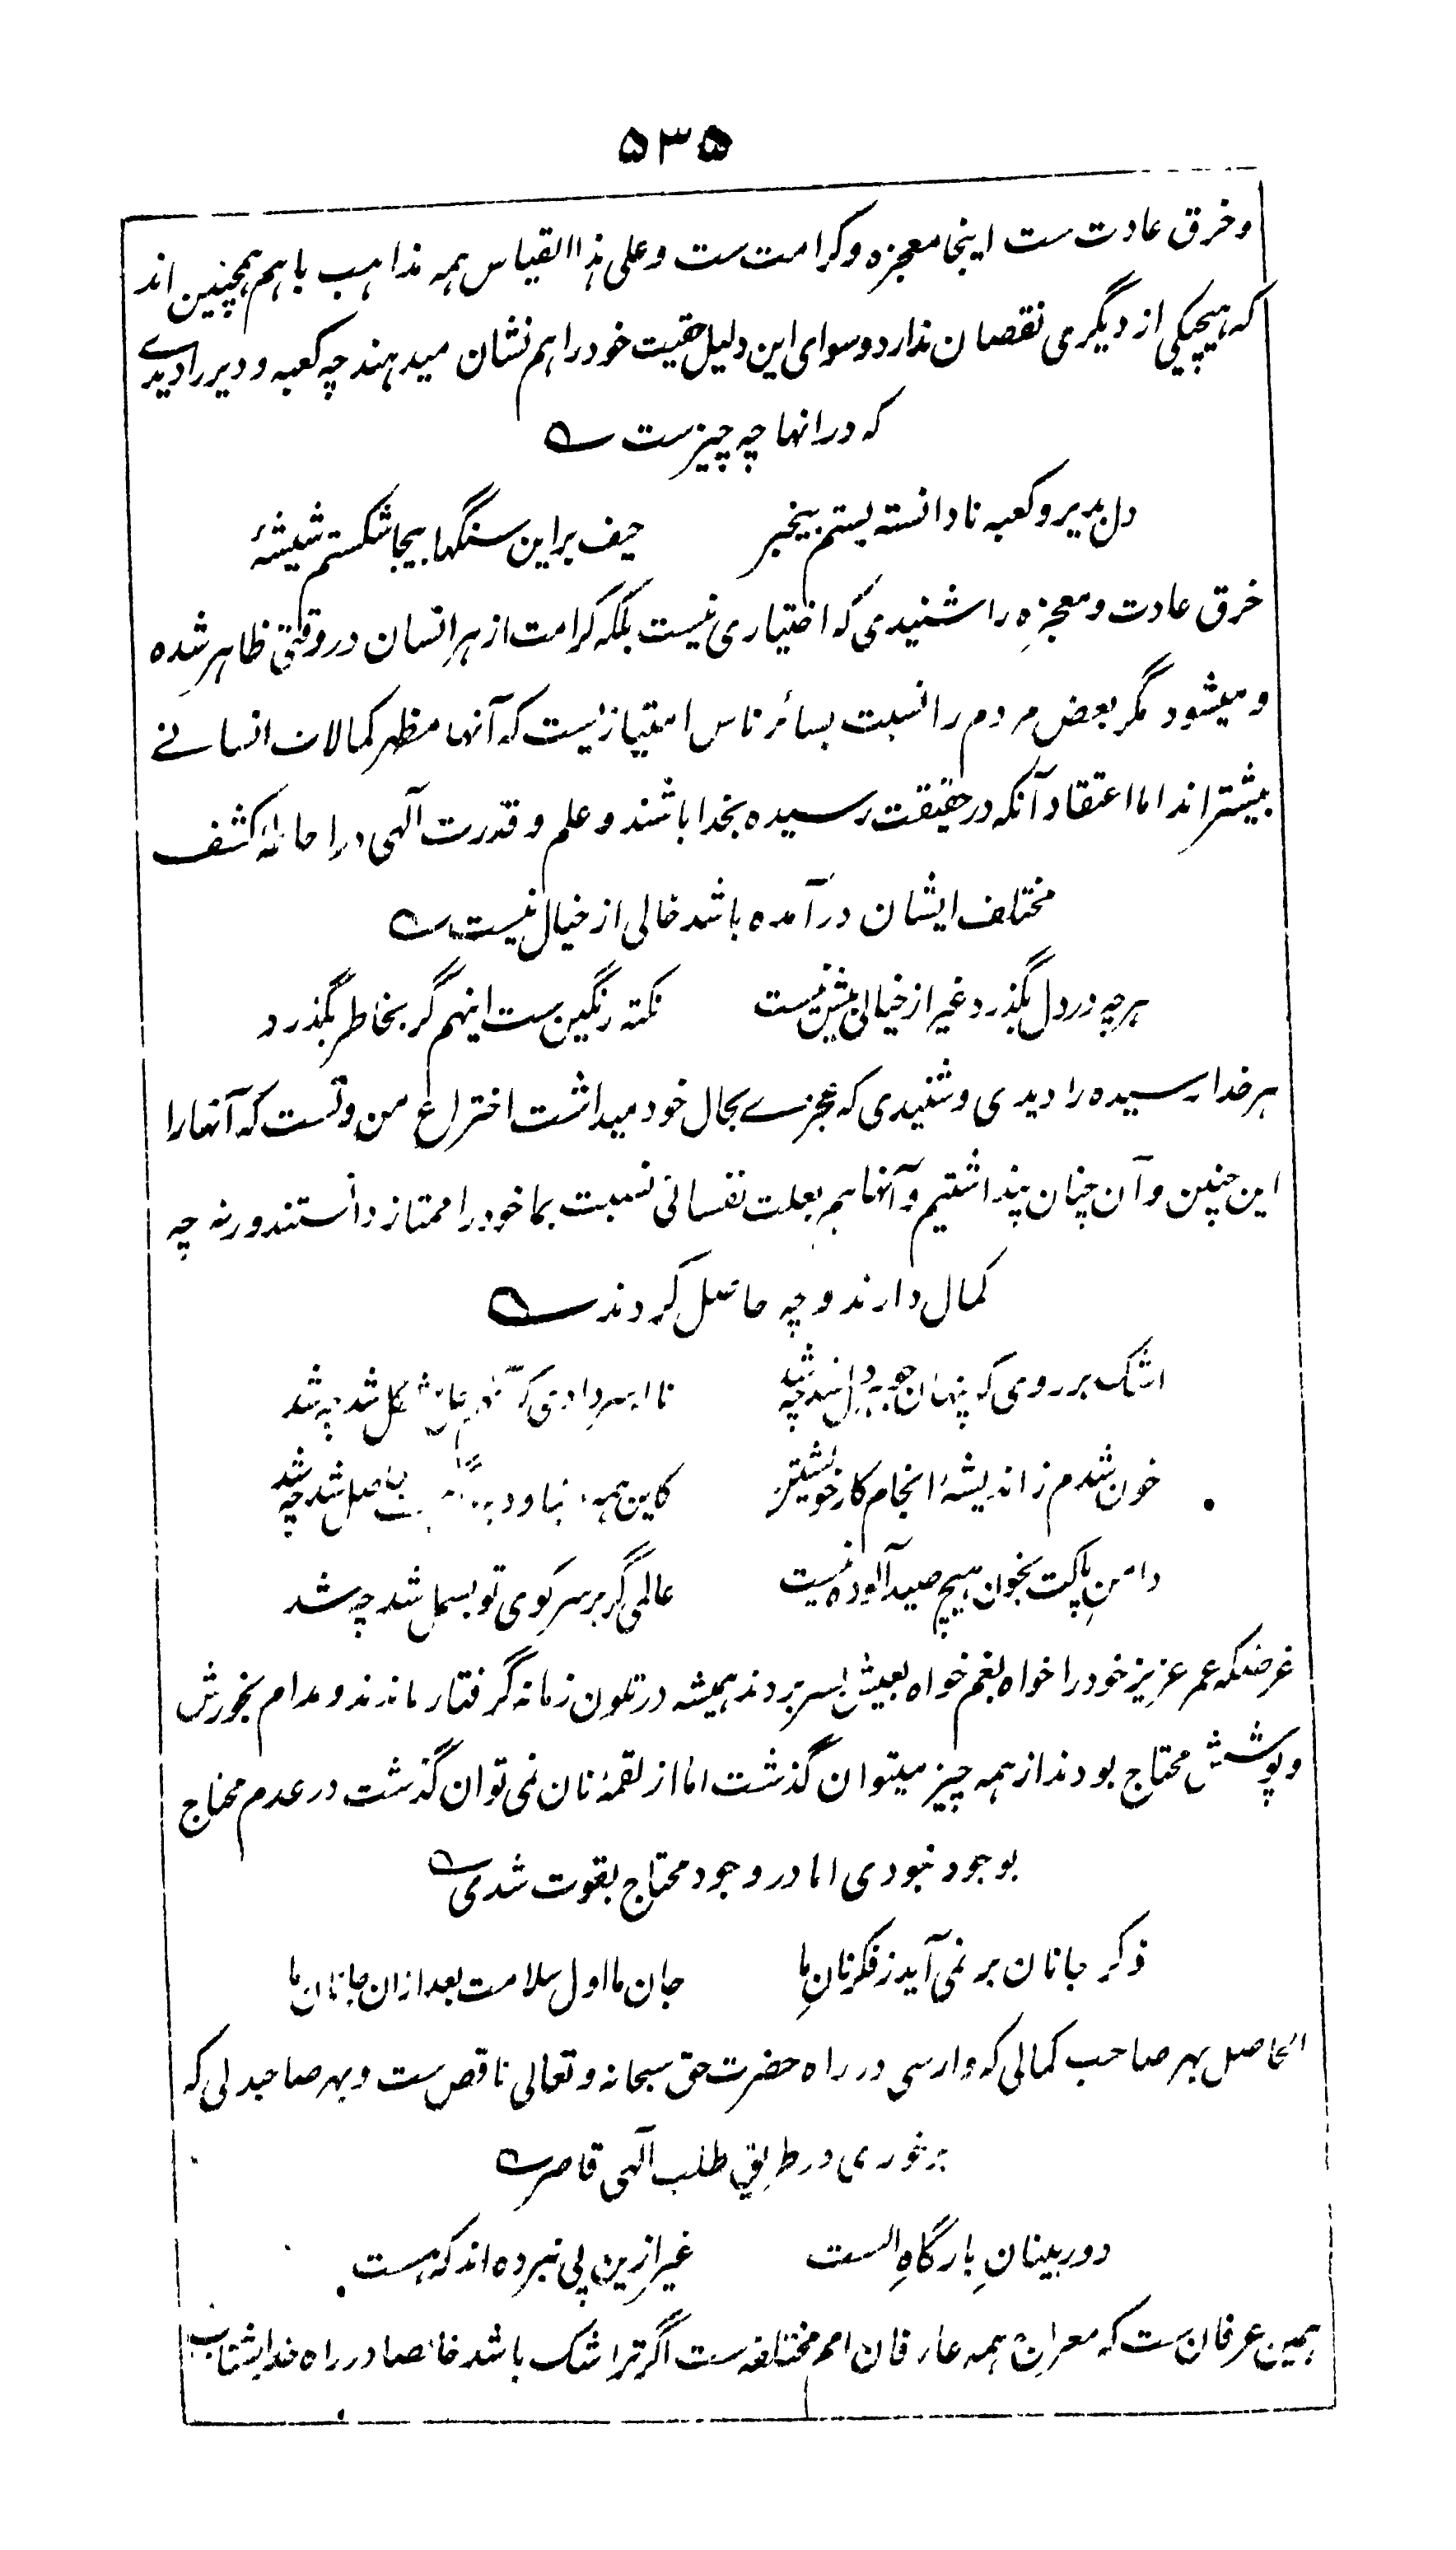 ۵۳۵
و خرق عادت ست اینجا معجزه و کرامت ست و علی هذا القیاس همه مذاهب باهم همچنین اند
که هیچیکی از دیگری نقصان ندارد و سوای این دلیل حقیت خود را هم نشان میدهند چه کعبه و دیر را دیدے
که در انها چه چیز ست
دل بدیر و کعبه نادانسته بستم بیخبر حیف بر این سنگها بیجا شکستم شیشهٔ
خرق عادت و معجزه را شنیدی که اختیاری نیست بلکه کرامت از هر انسان در وقتی ظاهر شده
و میشود مگر بعض مردم را نسبت بسائر ناس امتیازیست که آنها مظهر کمالات انسانے
بیشتر اند اما اعتقاد آنکه در حقیقت رسیده بخدا باشند و علم و قدرت آلهی در احاطهٔ کشف
مختلف ایشان در آمده باشد خالی از خیال نیست
هرچه در دل بگذرد غیر از خیالی بیش نیست نکته رنگین ست اینهم گر بخاطر بگذرد
هر خدا رسیده را دیدی و شنیدی که عجزے بحال خود میداشت اختراع من و تست که آنها را
این چنین و آن چنان پنداشتیم و آنها هم بعلت نفسانی نسبت بما خود را ممتاز دانستند ورنه چه
کمال دارند و چه حاصل کردند
اشک بر روی که پنهان شد چه شد شد چه شد
خون شدم ز اندیشهٔ انجام کار خویشتن کاین همه شد چه شد
دامنِ پاکت بخون هیچ صید آلوده نیست عالمی گر بر سر کوی تو بسمل شد چه شد
غرضکه عمر عزیز خود را خواه بغم خواه بعیش بسر بردند همیشه در تلون زمانه گرفتار ماندند و مدام بخورش
و پوشش محتاج بودند از همه چیز میتوان گذشت اما از لقمهٔ نان نمی توان گذشت در عدم محتاج
بوجود نبودی اما در وجود محتاج بقوت شدی
ذکر جانان بر نمی آید ز فکر نانِ ما جان ما اول سلامت بعد ازان جانان ما
الحاصل بهر صاحب کمالی که وارسی در راه حضرت حق سبحانه و تعالی ناقص ست و بهر صاحبدلی که
برخوری در طریق طلب آلهی قاصر
دور بینانِ بارگاهِ الست غیر ازین پی نبرده اند که هست
همین عرفان ست که معراج همه عارفان امم مختلفه ست اگر ترا شک باشد خالصا در راه خدا بشتاب